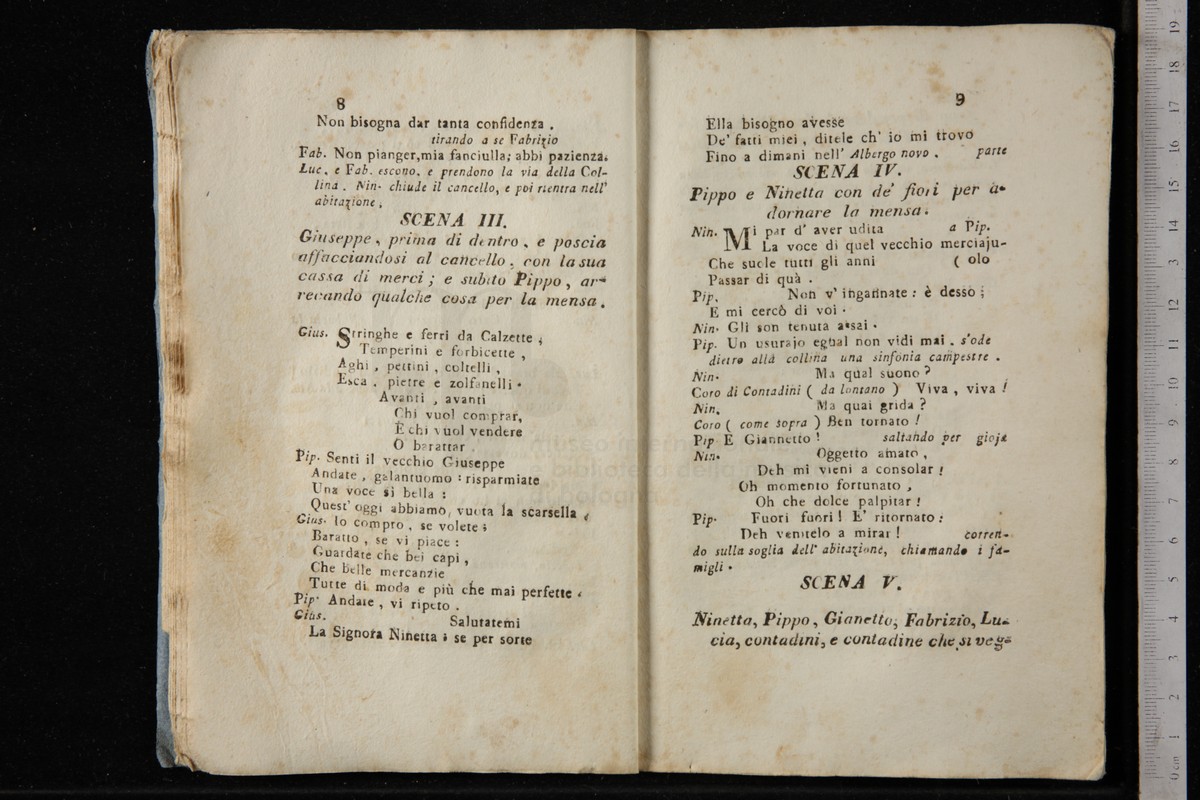 8
Non bisogna dar tanta confidenza .
tirando a se Fabrizio
Fab. Non pianger,mia fanciulla; abbi pazienza.
Luc. e Fab. escono. e prendono la via della Col-
lina . Nin. chiude il cancello, e poi rientra nell'
abitazione .
SCENA III.
Giuseppe , prima di dentro , e poscia
affacciandosi al cancello , con la sua
cassa di merci ; e subito Pippo , ar-
recando qualche cosa per la mensa .
Gius. Stringhe e ferri da Calzette ,
Temperini e forbicette ,
Aghi , pettini , coltelli ,
Esca , pietre e zolfanelli .
Avanti , avanti
Chi vuol comprar,
E chi vuol vendere
O barattar .
Pip. Senti il vecchio Giuseppe
Andate , galantuomo : risparmiate
Una voce sì bella :
Quest' oggi abbiamo, vuota la scarsella ,
Gius. Io compro , se volete ;
Baratto , se vi piace :
Guardate che bei capi ,
Che belle mercanzie
Tutte di moda e più che mai perfette .
Pip. Andate , vi ripeto .
Gius. Salutatemi
La Signora Ninetta ; se per sorte
9
Ella bisogno avesse
De' fatti miei , ditele ch' io mi trovo
Fino a dimani nell' Albergo novo . parte
SCENA IV.
Pippo e Ninetta con de' fiori per a-
dornare la mensa .
Nin. Mi par d' aver udita a Pip.
La voce di quel vecchio merciaju-
Che suole tutti gli anni ( olo
Passar di quà .
Pip. Non v' ingannate : è desso ;
E mi cercò di voi .
Nin. Gli son tenuta assai .
Pip. Un usurajo egual non vidi mai . s'ode
dietro alla collina una sinfonia campestre .
Nin. Ma qual suono ?
Coro di Contadini ( da lontano ) Viva , viva !
Nin. Ma quai grida ?
Coro ( come sopra ) Ben tornato !
Pip E Giannetto ! saltando per gioja
Nin. Oggetto amato ,
Deh mi vieni a consolar !
Oh momento fortunato ,
Oh che dolce palpitar !
Pip. Fuori fuori ! E' ritornato :
Deh venitelo a mirar ! corren-
do sulla soglia dell' abitazione, chiamando i fa-
migli .
SCENA V.
Ninetta, Pippo , Gianetto, Fabrizio, Lu-
cia, contadini, e contadine che si veg-